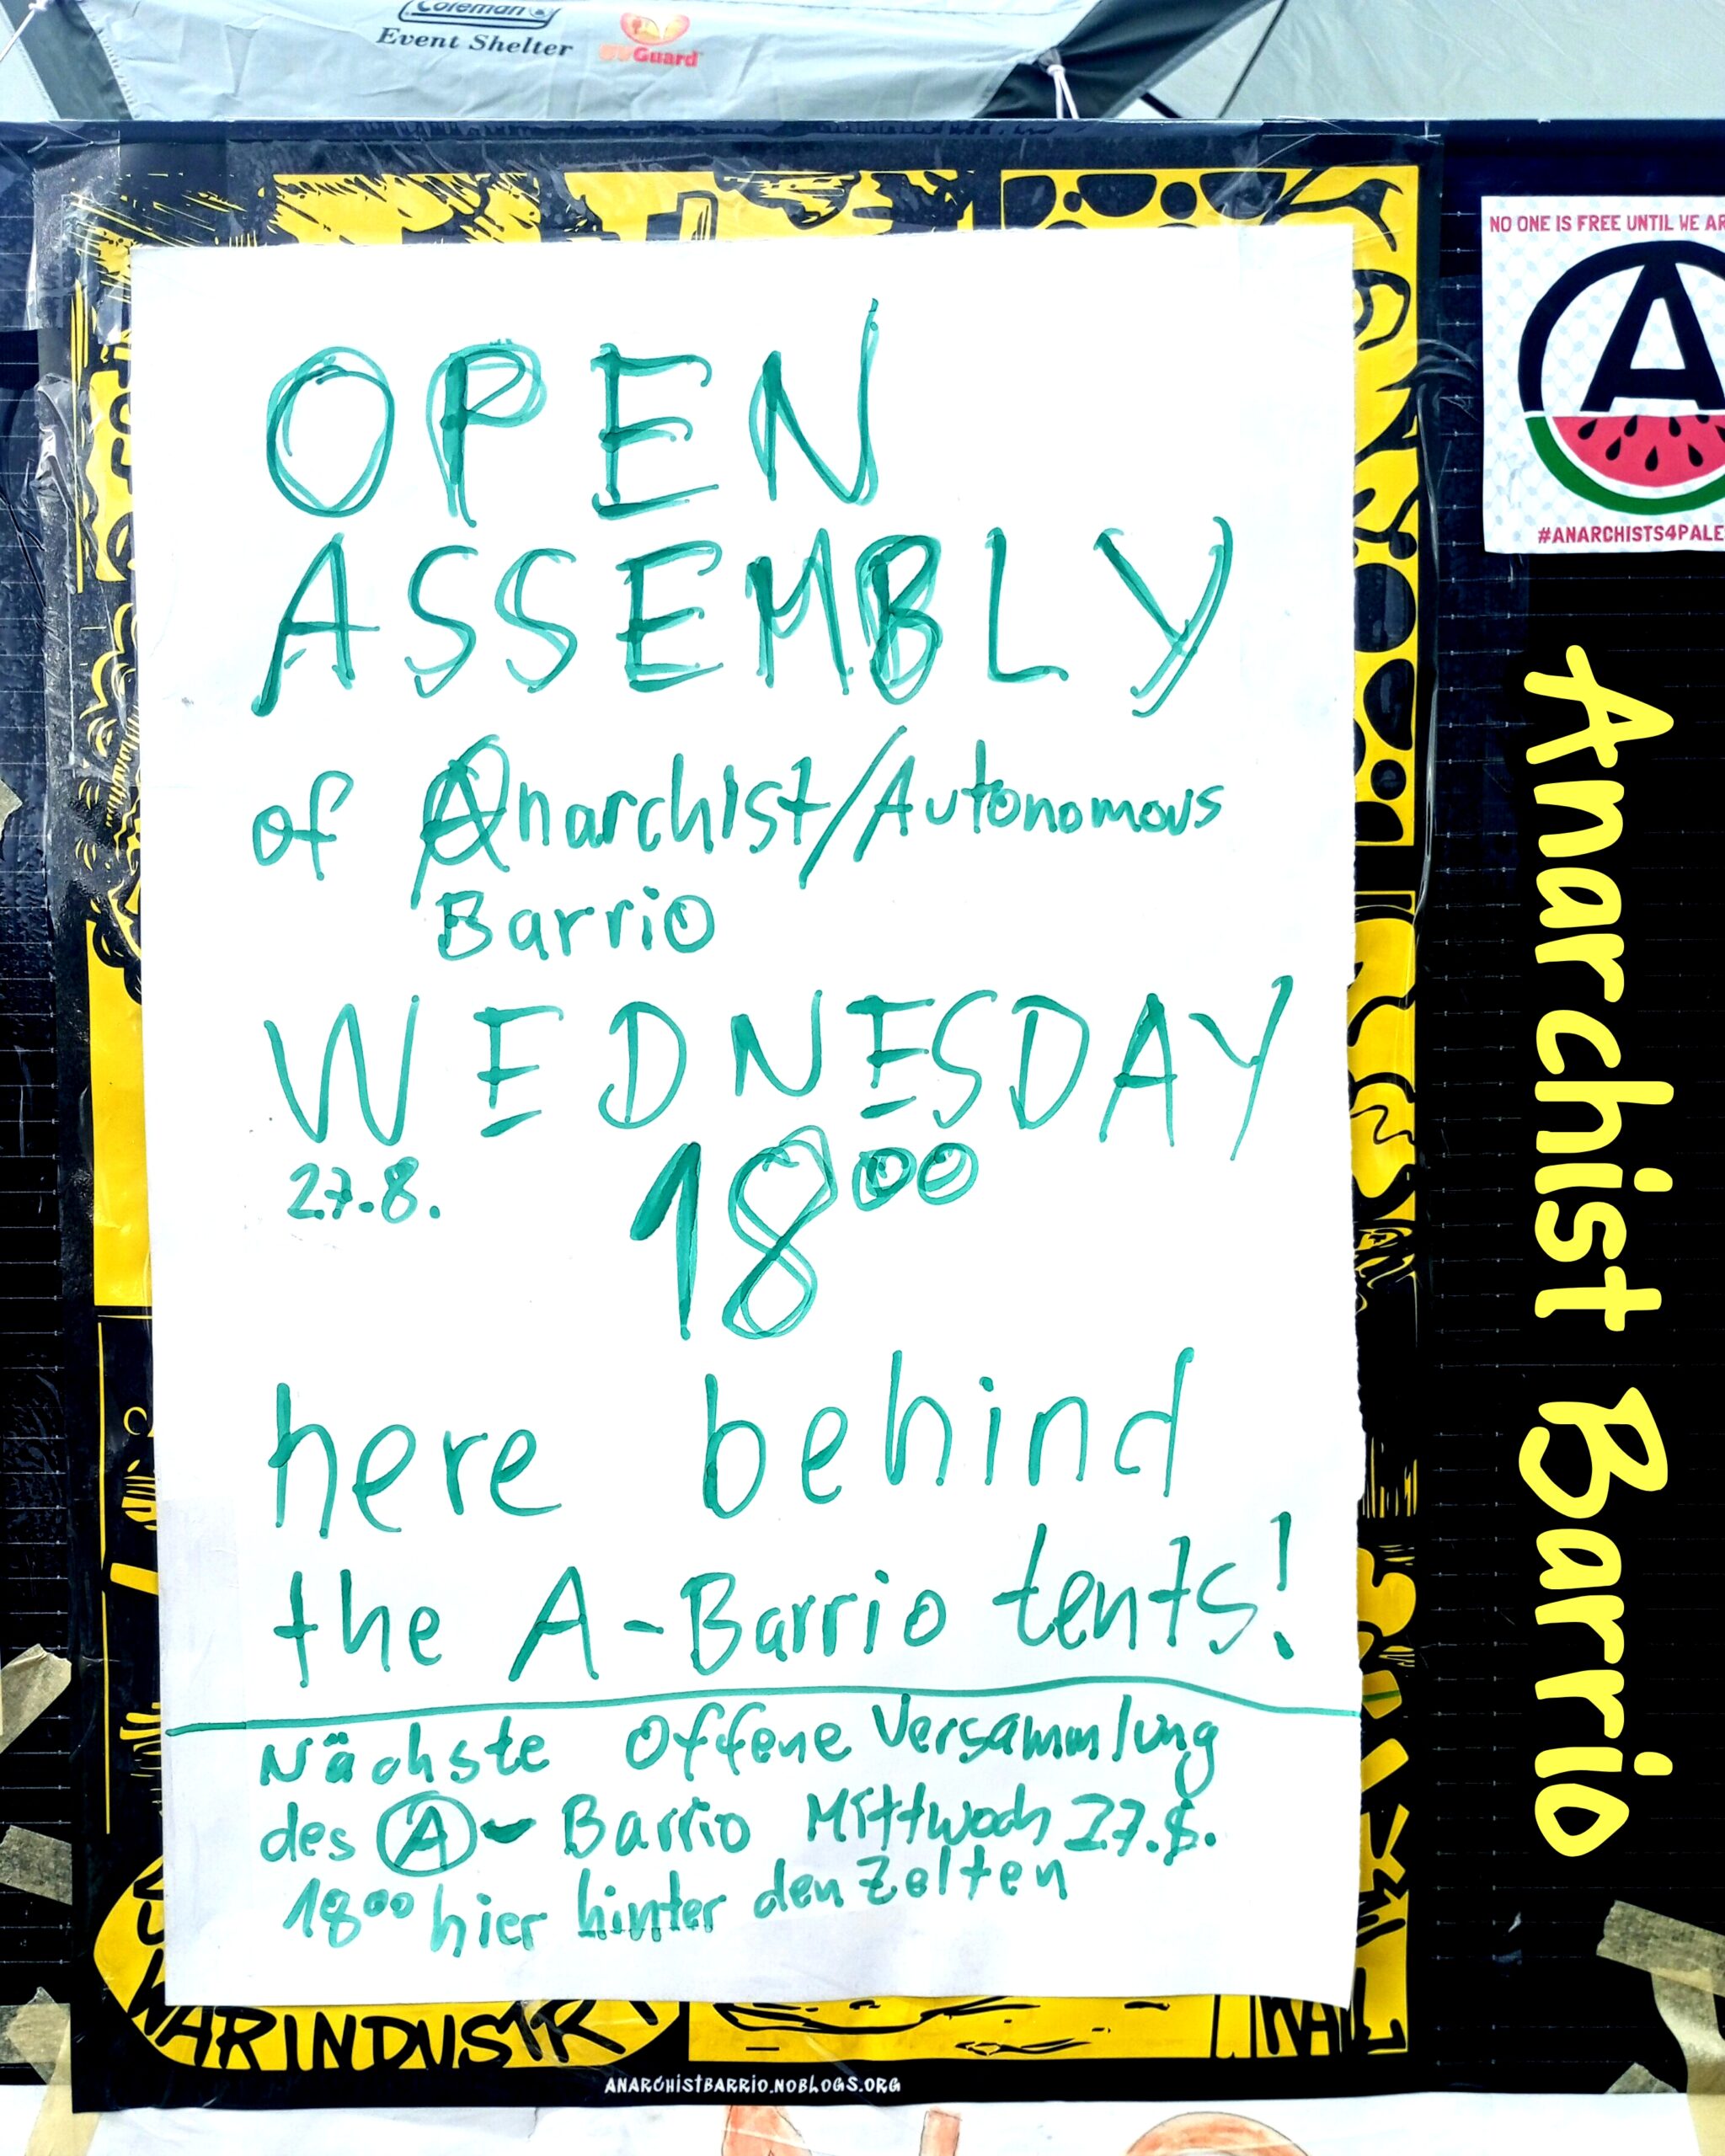 Coleman
Event Shelter
Guard
NO ONE IS FREE UNTIL WE
#ANARCHISTS4PALE
OPEN
ASSEMBLY
of Anarchist/Autonomous
Barrio
WEDNESDAY
27.8. 18⁰⁰
here behind
the A-Barrio tents!
Nächste Offene Versammlung
des A-Barrio Mittwoch 27.8.
18⁰⁰ hier hinter den Zelten
Anarchist Barrio
WARINDUSTRY
ANARCHISTBARRIO.NOBLOGS.ORG